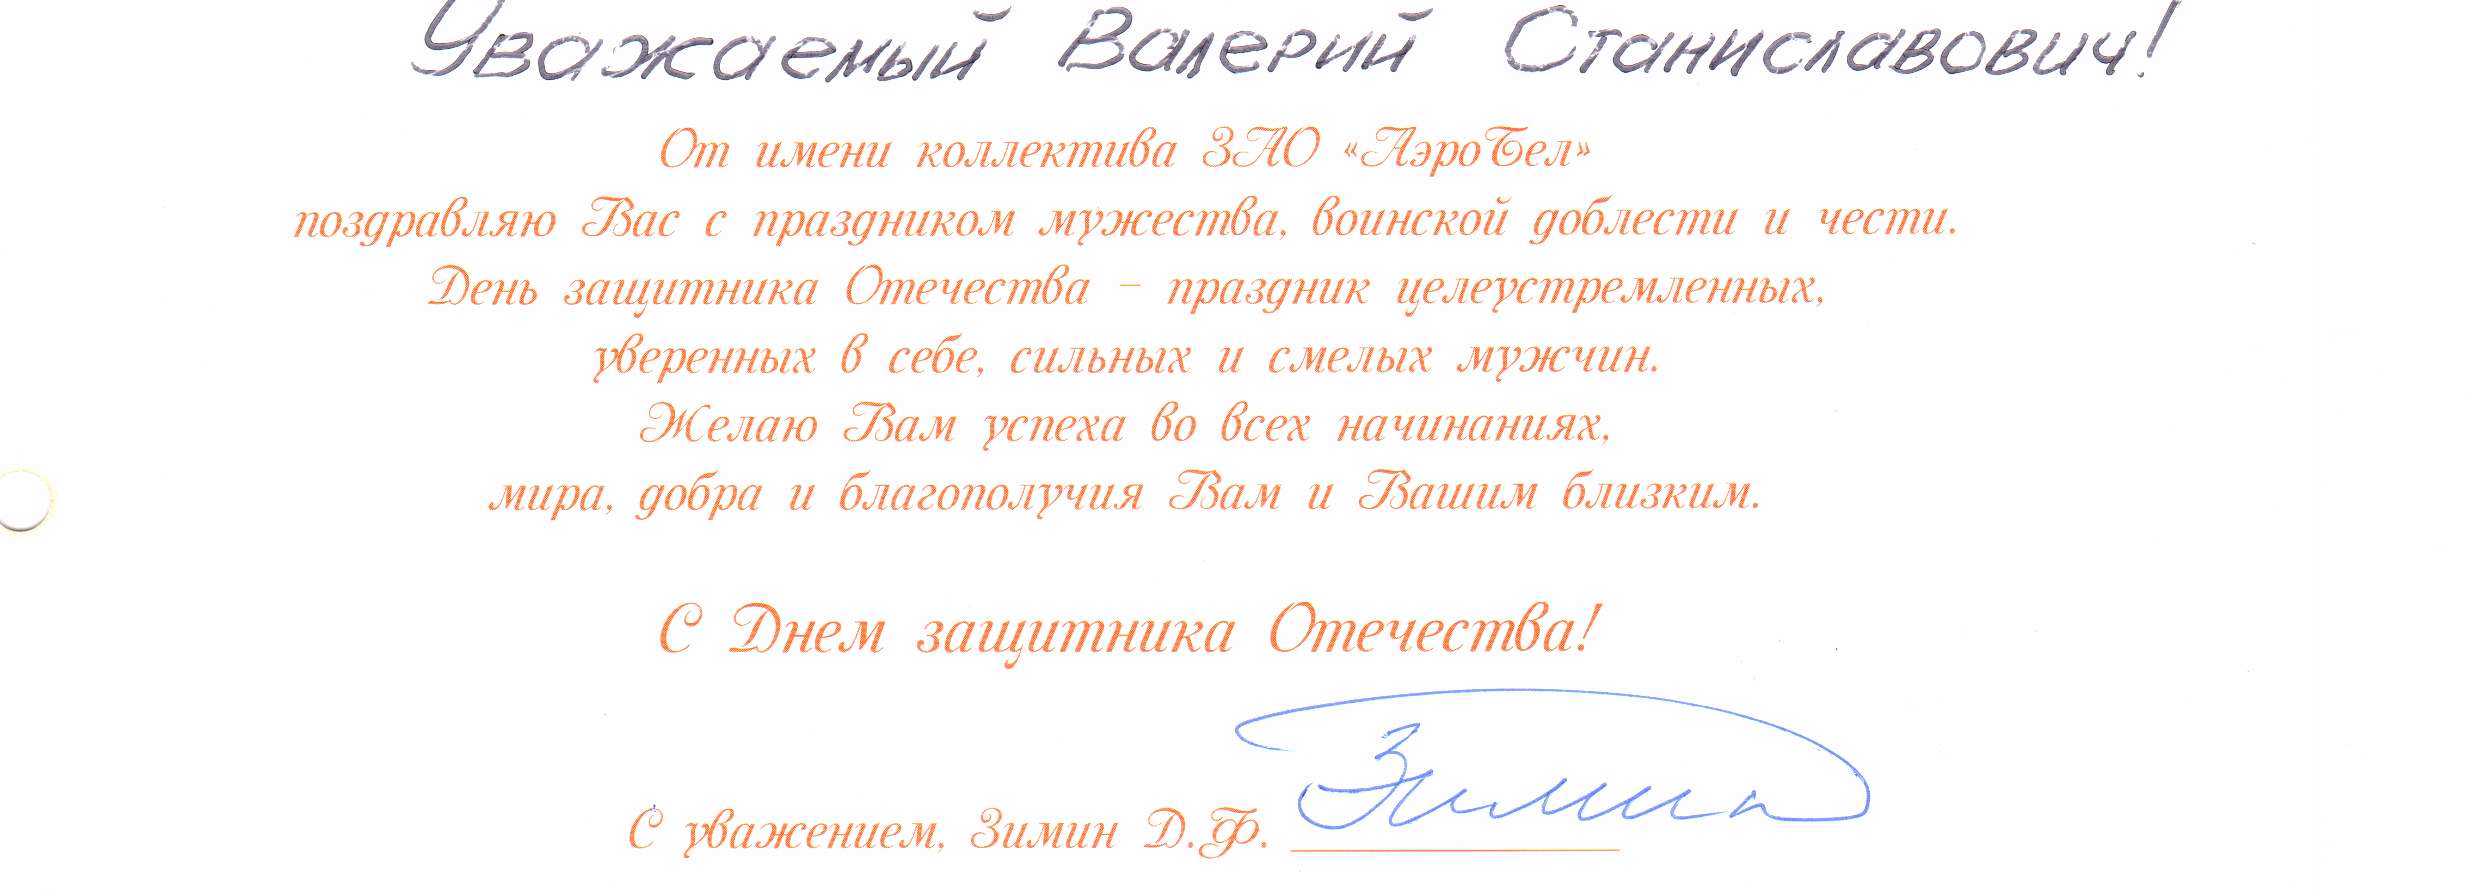 Уважаемый Валерий Станиславович!
От имени коллектива ЗАО «АэроБел»
поздравляю Вас с праздником мужества, воинской доблести и чести.
День защитника Отечества – праздник целеустремленных,
уверенных в себе, сильных и смелых мужчин.
Желаю Вам успеха во всех начинаниях,
мира, добра и благополучия Вам и Вашим близким.
С Днем защитника Отечества!
Зимин
С уважением, Зимин Д.Ф.